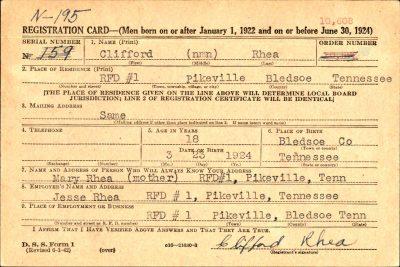 N-195
10,608
REGISTRATION CARD—(Men born on or after January 1, 1922 and on or before June 30, 1924)
SERIAL NUMBER 1. NAME (Print) ORDER NUMBER
№ 159 Clifford (nmn) Rhea
(First) (Middle) (Last)
2. PLACE OF RESIDENCE (Print)
RFD #1 Pikeville Bledsoe Tennessee
(Number and street) (Town, township, village, or city) (County) (State)
[THE PLACE OF RESIDENCE GIVEN ON THE LINE ABOVE WILL DETERMINE LOCAL BOARD
JURISDICTION; LINE 2 OF REGISTRATION CERTIFICATE WILL BE IDENTICAL]
3. MAILING ADDRESS
Same
(Mailing address if other than place indicated on line 2. If same insert word same)
4. TELEPHONE 5. AGE IN YEARS 6. PLACE OF BIRTH
18 Bledsoe Co
DATE OF BIRTH (Town or county)
3 23 1924 Tennessee
(Exchange) (Number) (Mo.) (Day) (Yr.) (State or country)
7. NAME AND ADDRESS OF PERSON WHO WILL ALWAYS KNOW YOUR ADDRESS
Mary Rhea (mother) RFD#1, Pikeville, Tenn
8. EMPLOYER'S NAME AND ADDRESS
Jesse Rhea RFD # 1, Pikeville, Tennessee
9. PLACE OF EMPLOYMENT OR BUSINESS
RFD # 1, Pikeville, Bledsoe Tenn
(Number and street or R. F. D. number) (Town) (County) (State)
I AFFIRM THAT I HAVE VERIFIED ABOVE ANSWERS AND THAT THEY ARE TRUE.
D. S. S. Form 1
(Revised 6-1-42) (over) Clifford Rhea
(Registrant's signature)